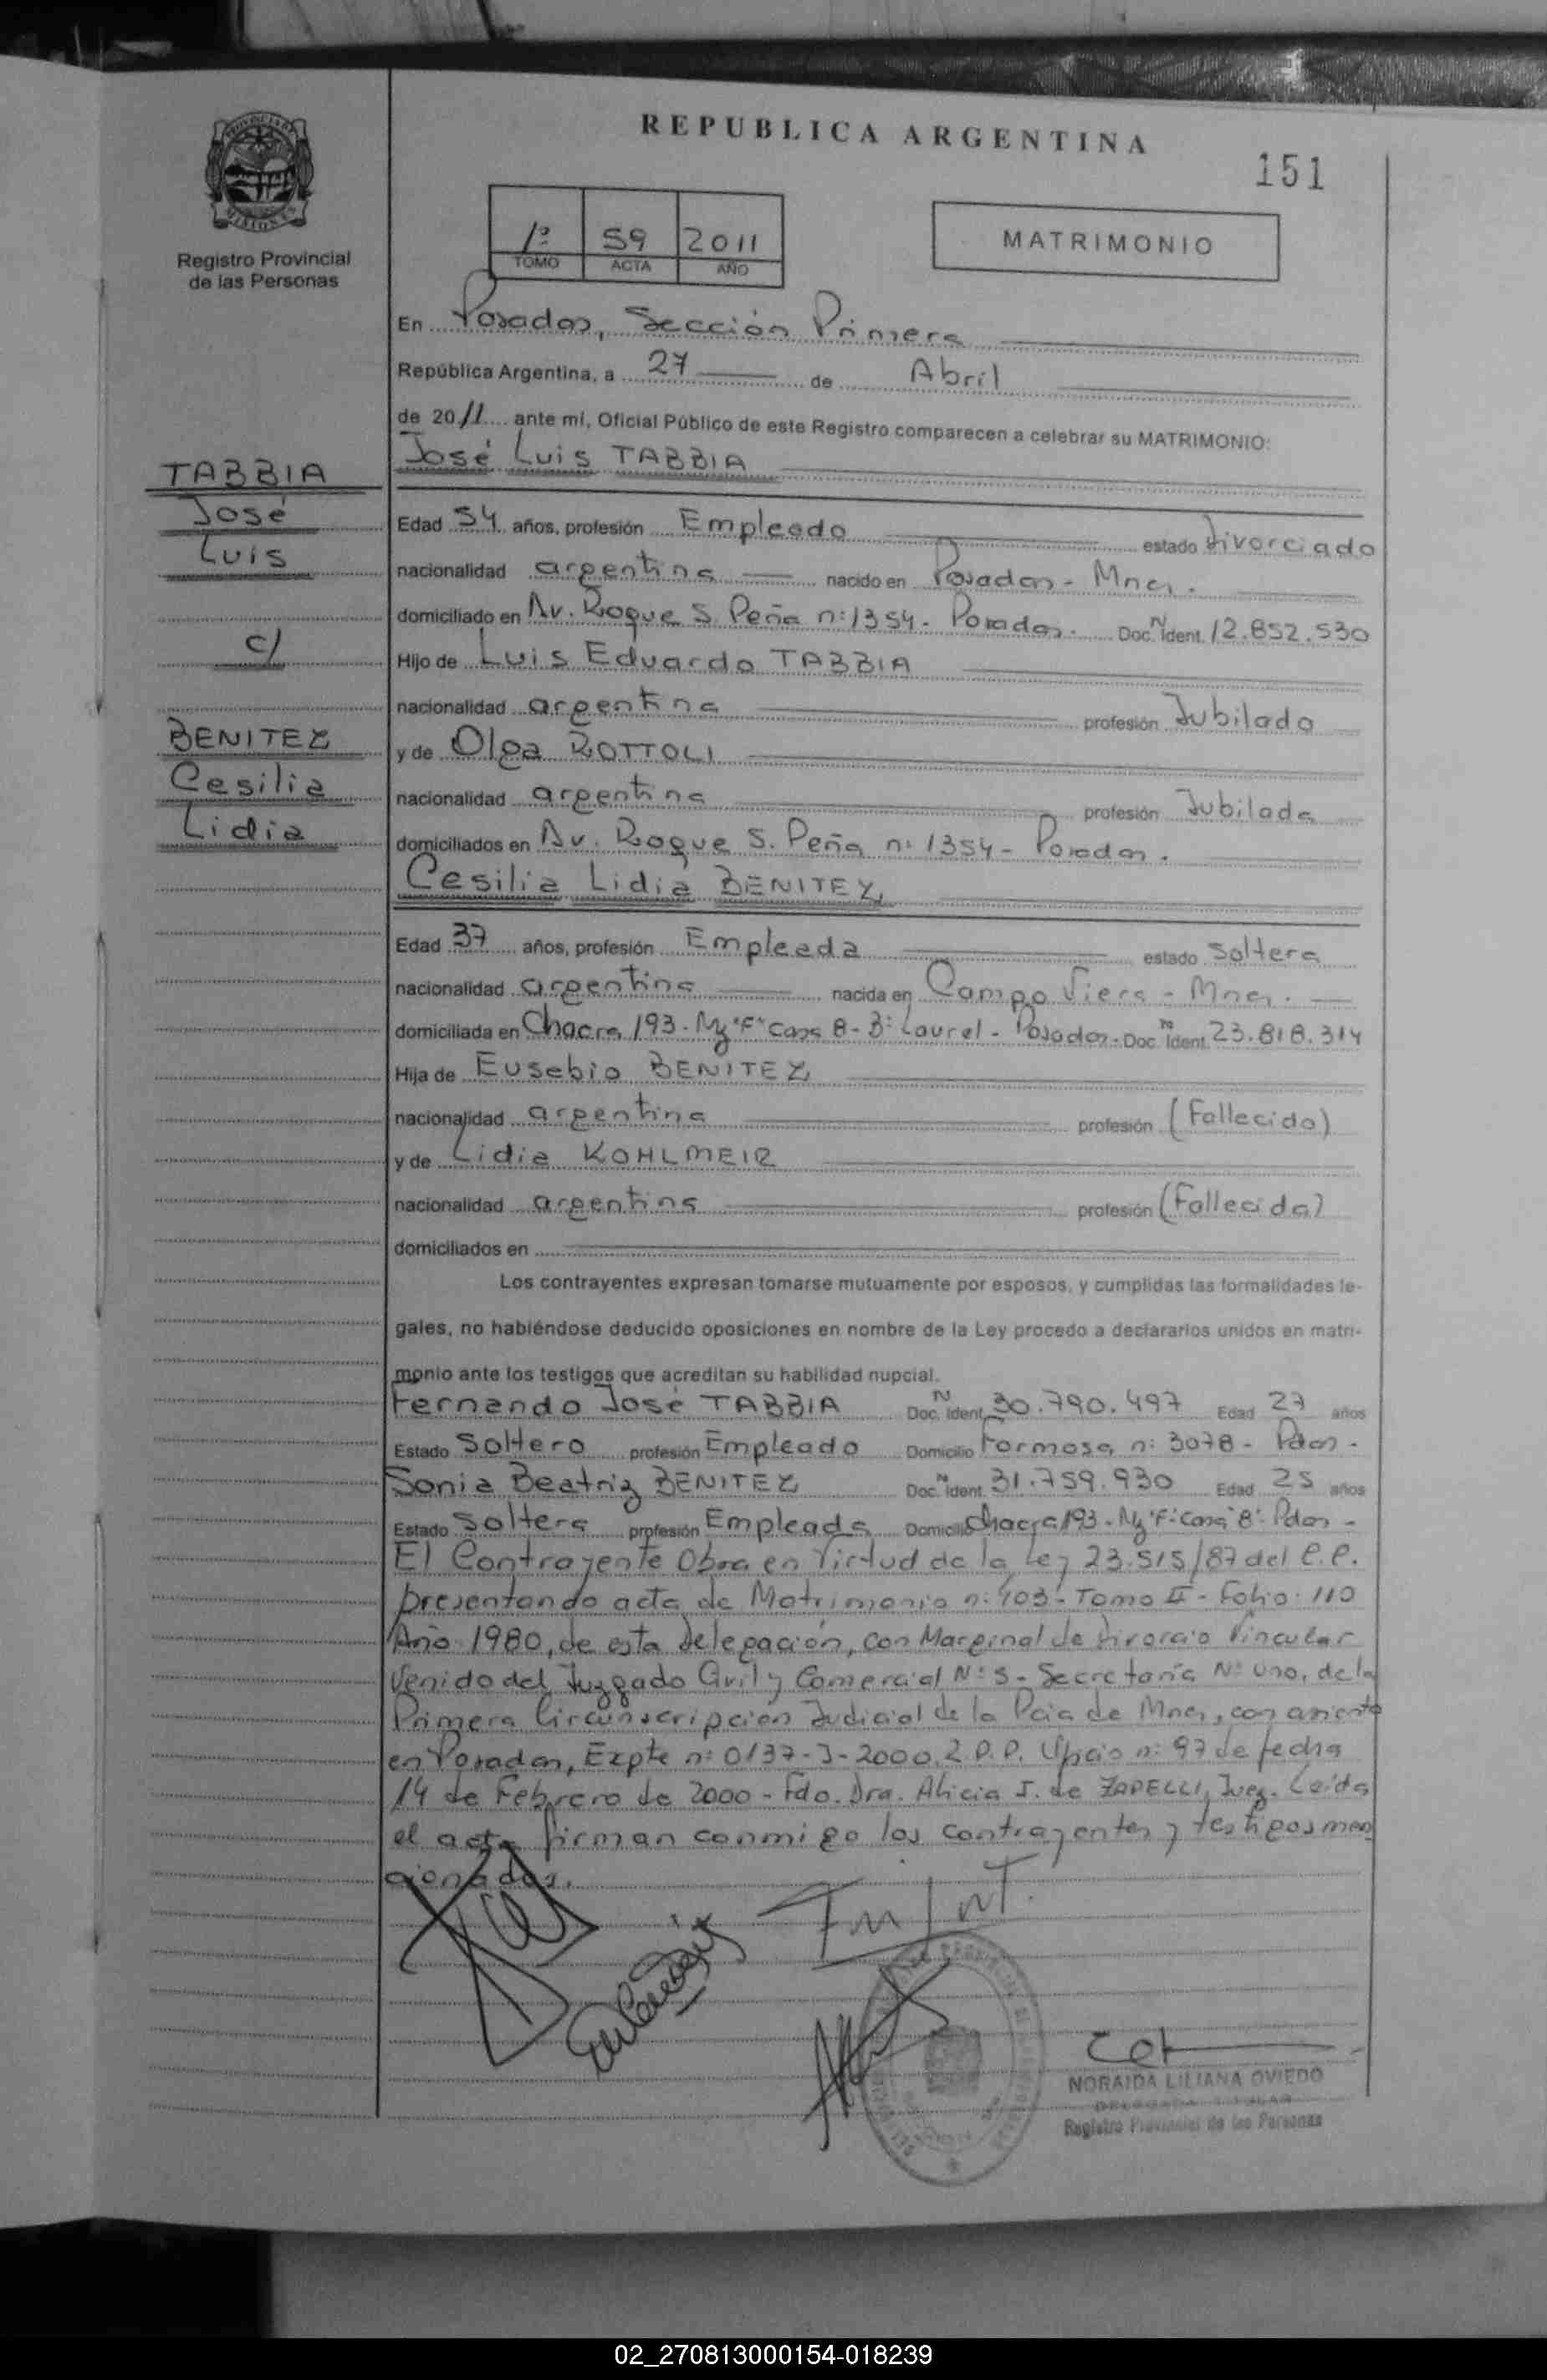 REPUBLICA ARGENTINA
151
Registro Provincial
de las Personas
1º 59 2011
TOMO ACTA AÑO
MATRIMONIO
En Posadas, Sección Primera
República Argentina, a 27 de Abril
de 2011 ante mí, Oficial Público de este Registro comparecen a celebrar su MATRIMONIO:
José Luis TABBIA
TABBIA
José
Luis
c/
BENITEZ
Cesilia
Lidia
Edad 54 años, profesión Empleado estado Divorciado
nacionalidad argentina nacido en Posadas - Mnes.
domiciliado en Av. Roque S. Peña n: 1354 - Posadas. Doc. N Ident. 12.852.530
Hijo de Luis Eduardo TABBIA
nacionalidad argentina profesión Jubilado
y de Olga ROTTOLI
nacionalidad argentina profesión Jubilada
domiciliados en Av. Roque S. Peña n: 1354 - Posadas.
Cesilia Lidia BENITEZ
Edad 37 años, profesión Empleada estado Soltera
nacionalidad argentina nacida en Campo Viera - Mnes.
domiciliada en Chacra 193 - Mz "F" Casa 8 - B: Laurel - Posadas. Doc. Nº Ident. 23.818.314
Hija de Eusebio BENITEZ
nacionalidad argentina profesión (Fallecido)
y de Lidia KOHLMEIR
nacionalidad argentina profesión (Fallecida)
domiciliados en
Los contrayentes expresan tomarse mutuamente por esposos, y cumplidas las formalidades le-
gales, no habiéndose deducido oposiciones en nombre de la Ley procedo a declararlos unidos en matri-
monio ante los testigos que acreditan su habilidad nupcial.
Fernando José TABBIA Doc. N Ident. 30.790.497 Edad 27 años
Estado Soltero profesión Empleado Domicilio Formosa n: 3078 - Pdas.
Sonia Beatriz BENITEZ Doc. N Ident. 31.759.930 Edad 25 años
Estado Soltera profesión Empleada Domicilio Chacra 193 - Mz "F" Casa "8" Pdas -
El Contrayente Obra en Virtud de la Ley 23.515/87 del P.P.
presentando acta de Matrimonio n: 403 - Tomo II - Folio: 110
Año 1980, de esta Delegación, con Marginal de Divorcio Vincular
Venido del Juzgado Civil y Comercial Nº 5 - Secretaría Nº Uno, de la
Primera Circunscripción Judicial de la Pcia de Mnes, con asiento
en Posadas, Expte n: 0137-J-2000. Oficio n: 97 de fecha
14 de Febrero de 2000 - Fdo. Dra. Alicia J. de ZAPELLI, Juez. Leída
el acta firman conmigo los contrayentes y testigos men
cionados.
NORAIDA LILIANA OVIEDO
DELEGADA TITULAR
Registro Provincial de las Personas
02_270813000154-018239